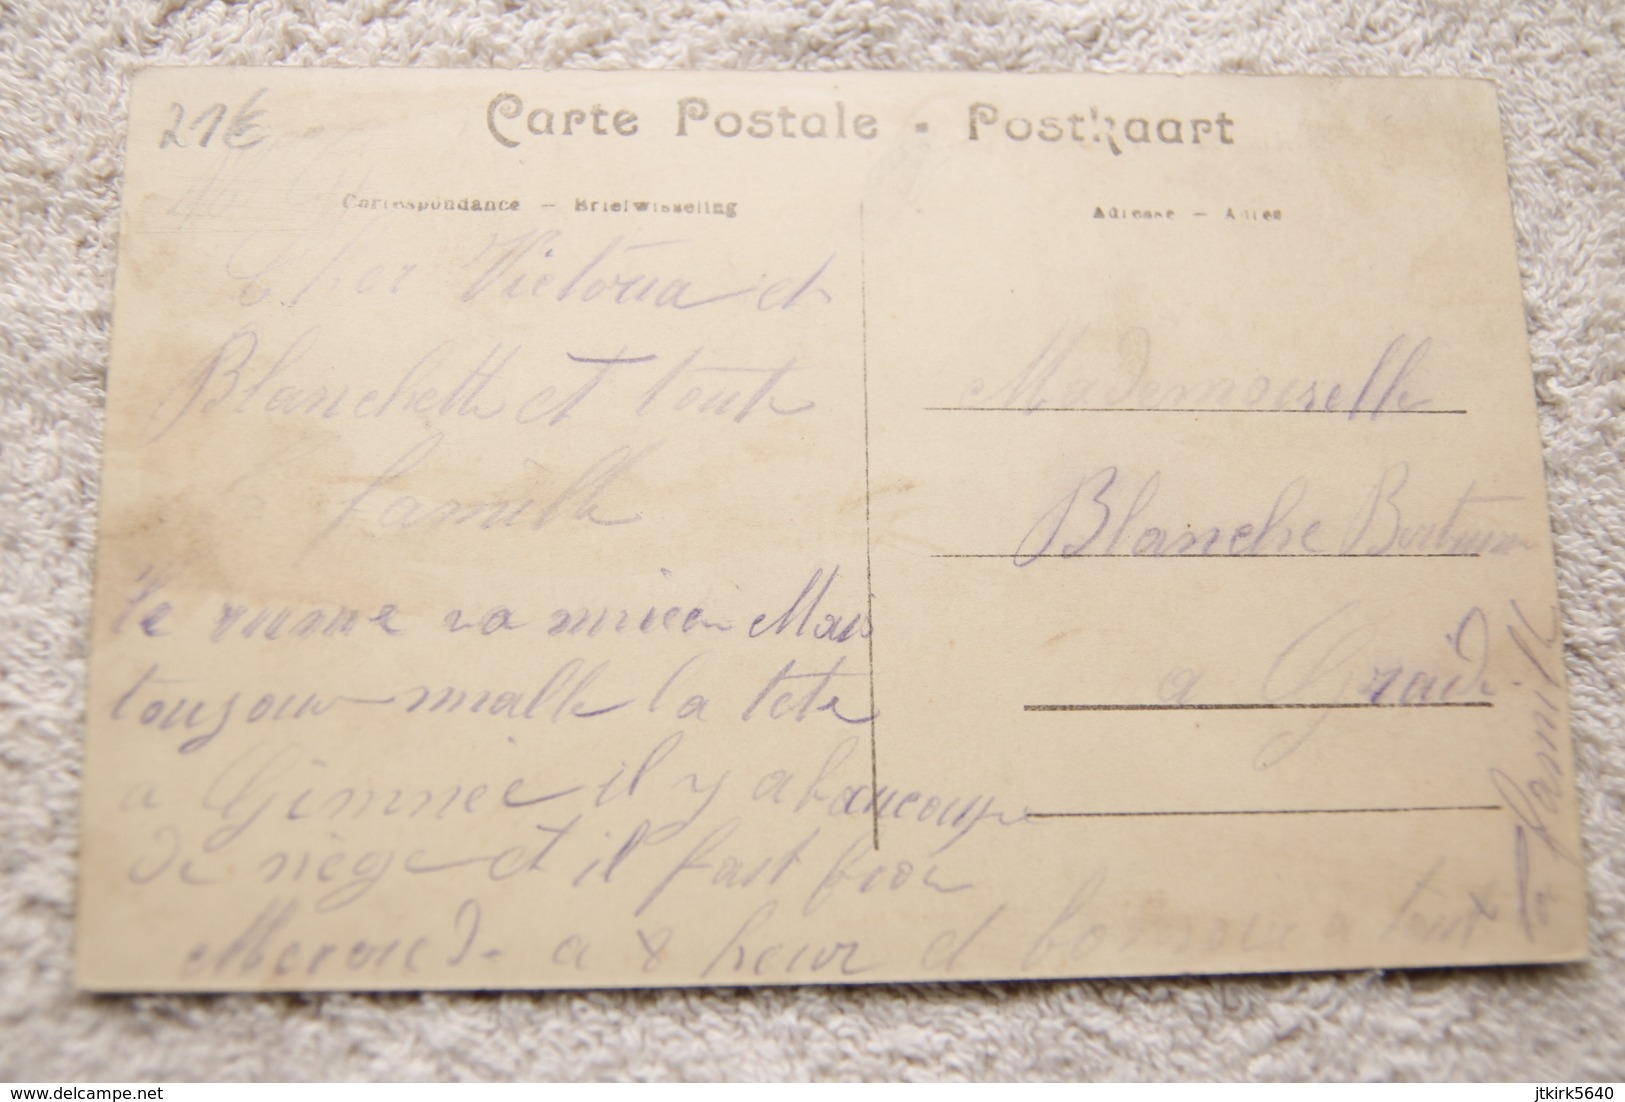 21€
Carte Postale - Postkaart
Correspondance — Briefwisseling
Adresse — Adres
Cher Victoria et
Blanchette et toute
famille
Le rume va mieu Mais
toujour malle la tete
a Gimnée il y a baucoupe
de nège et il fait froi
Mercred. a 8 heur et bonsoire a tout
la Famille
Mademoiselle
Blanche
a Graide
delcampe.net
jtkirk5640